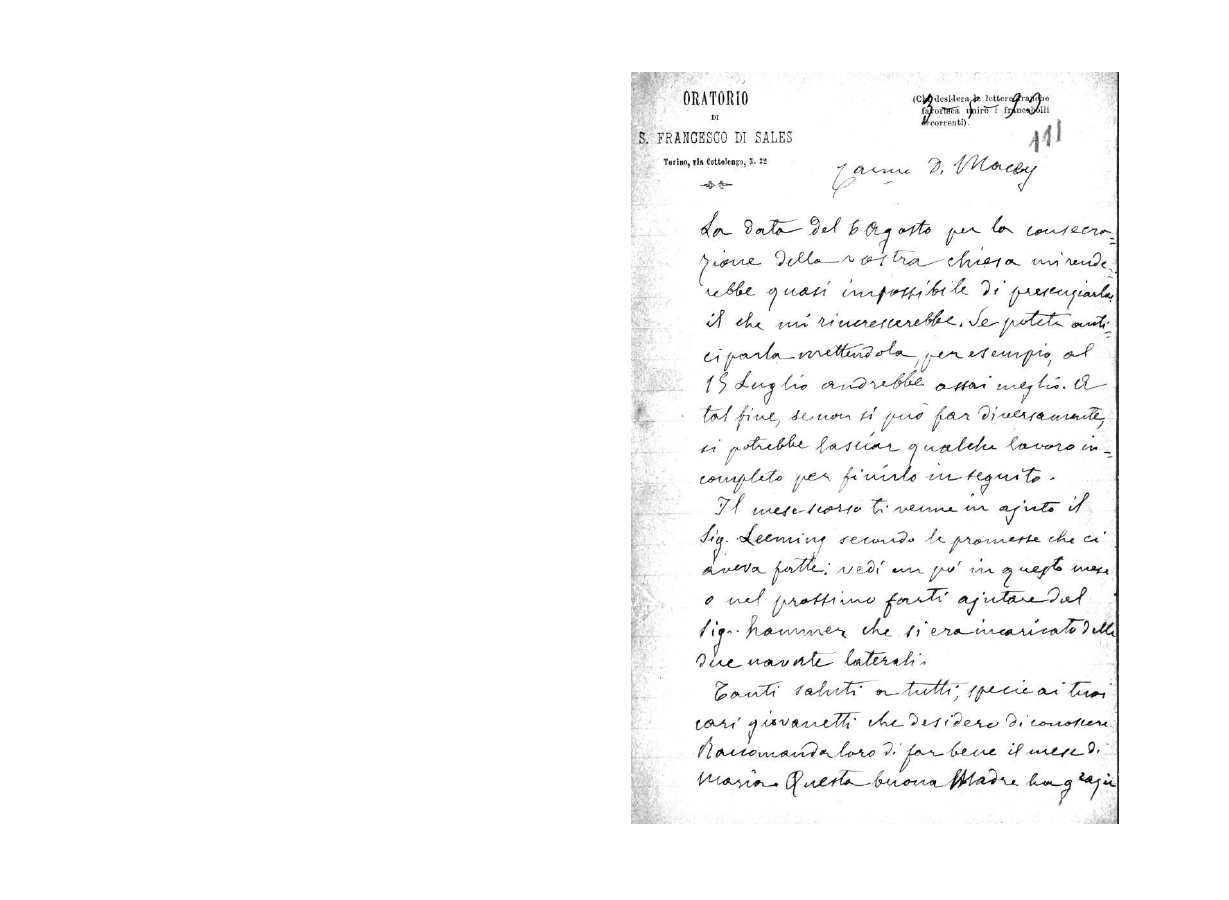 ORATORIO
DI
S. FRANCESCO DI SALES
Torino, via Cottolengo, N. 32
(Chi desidera le lettere franche
favorisca unire i francobolli
occorrenti).
3-5-93
111
Carmo D. Macey
La data del 6 Agosto per la consecra=
zione della vostra chiesa mi rende=
rebbe quasi impossibile di presenziarla,
il che mi rincrescerebbe. Se potete anti=
ciparla mettendola, per esempio, al
15 Luglio andrebbe assai meglio. A
tal fine, se non si può far diversamente,
si potrebbe lasciar qualche lavoro in=
completo per finirlo in seguito.
Il mese scorso ti venne in ajuto il
Sig. Leeming secondo le promesse che ci
aveva fatte: vedi un po' in questo mese
o nel prossimo farti ajutare dal
Sig. hammer che si era incaricato delle
due navate laterali.
Tanti saluti a tutti, specie ai tuoi
cari giovanetti che desidero di conoscere.
Raccomanda loro di far bene il mese di
Maria. Questa buona Madre ha grazie